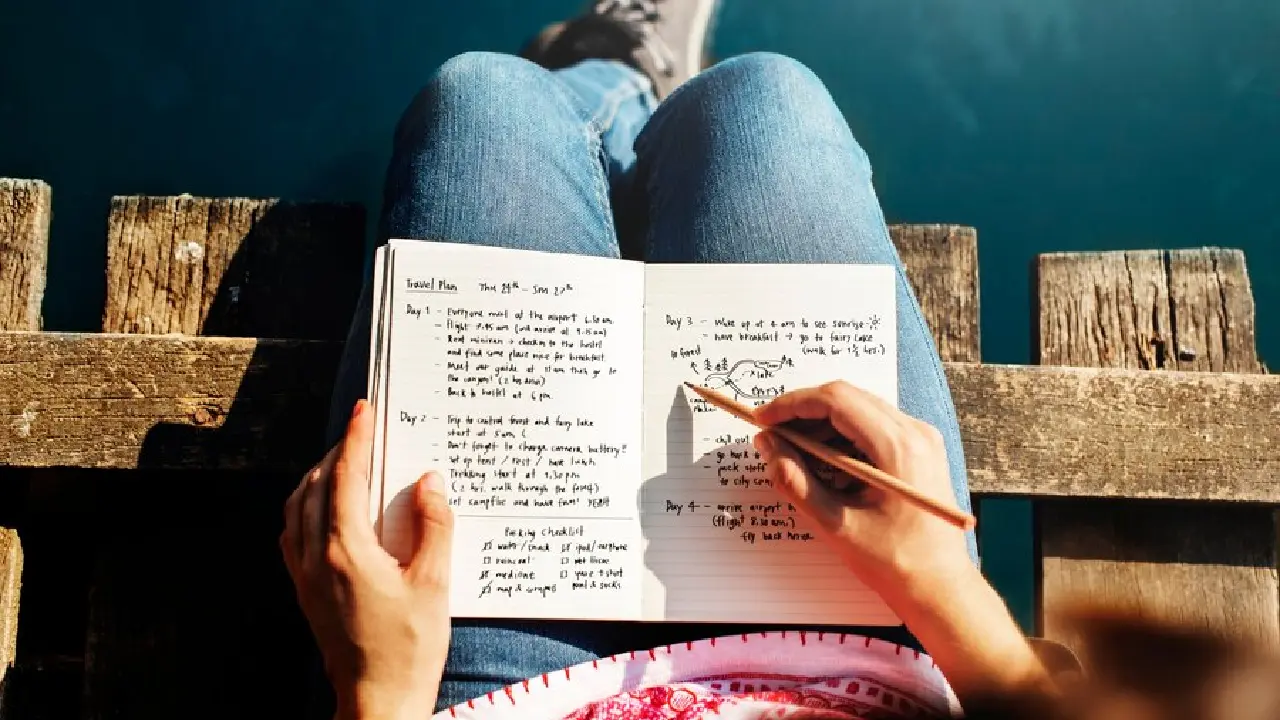 Travel Plan Thu 24th - Sun 27th
Day 1 - Everyone meet at the airport 6.30 am.
- Flight 7.45 am (will arrive at 9.15 am)
- Rent minivan → checkin to the hostel
and find some place nice for breakfast.
- Meet our guide at 11 am then go to
the canyon! (2 hrs away)
- Back to hostel at 6 pm.
Day 2 - Trip to central forest and fairy lake
start at 5 am,
- Don't forget to change camera battery!!
- Set up tent / rest / have lunch
- Trekking start at 4.30 pm
(2 hrs. walk through the forest)
set campfire and have fun! YEAH
Packing Checklist
water / snack ipod / earphone
raincoat wet tissue
medicine
map & compass pant & socks
Day 3 - Wake up at 4 am to see sunrise
- have breakfast → go to fairy lake
(walk for 1½ hrs.)
to forest
lake
- chill out
- go back
- pack stuff
to city
Day 4 - arrive airport
(flight 8.20 am.)
fly back home.